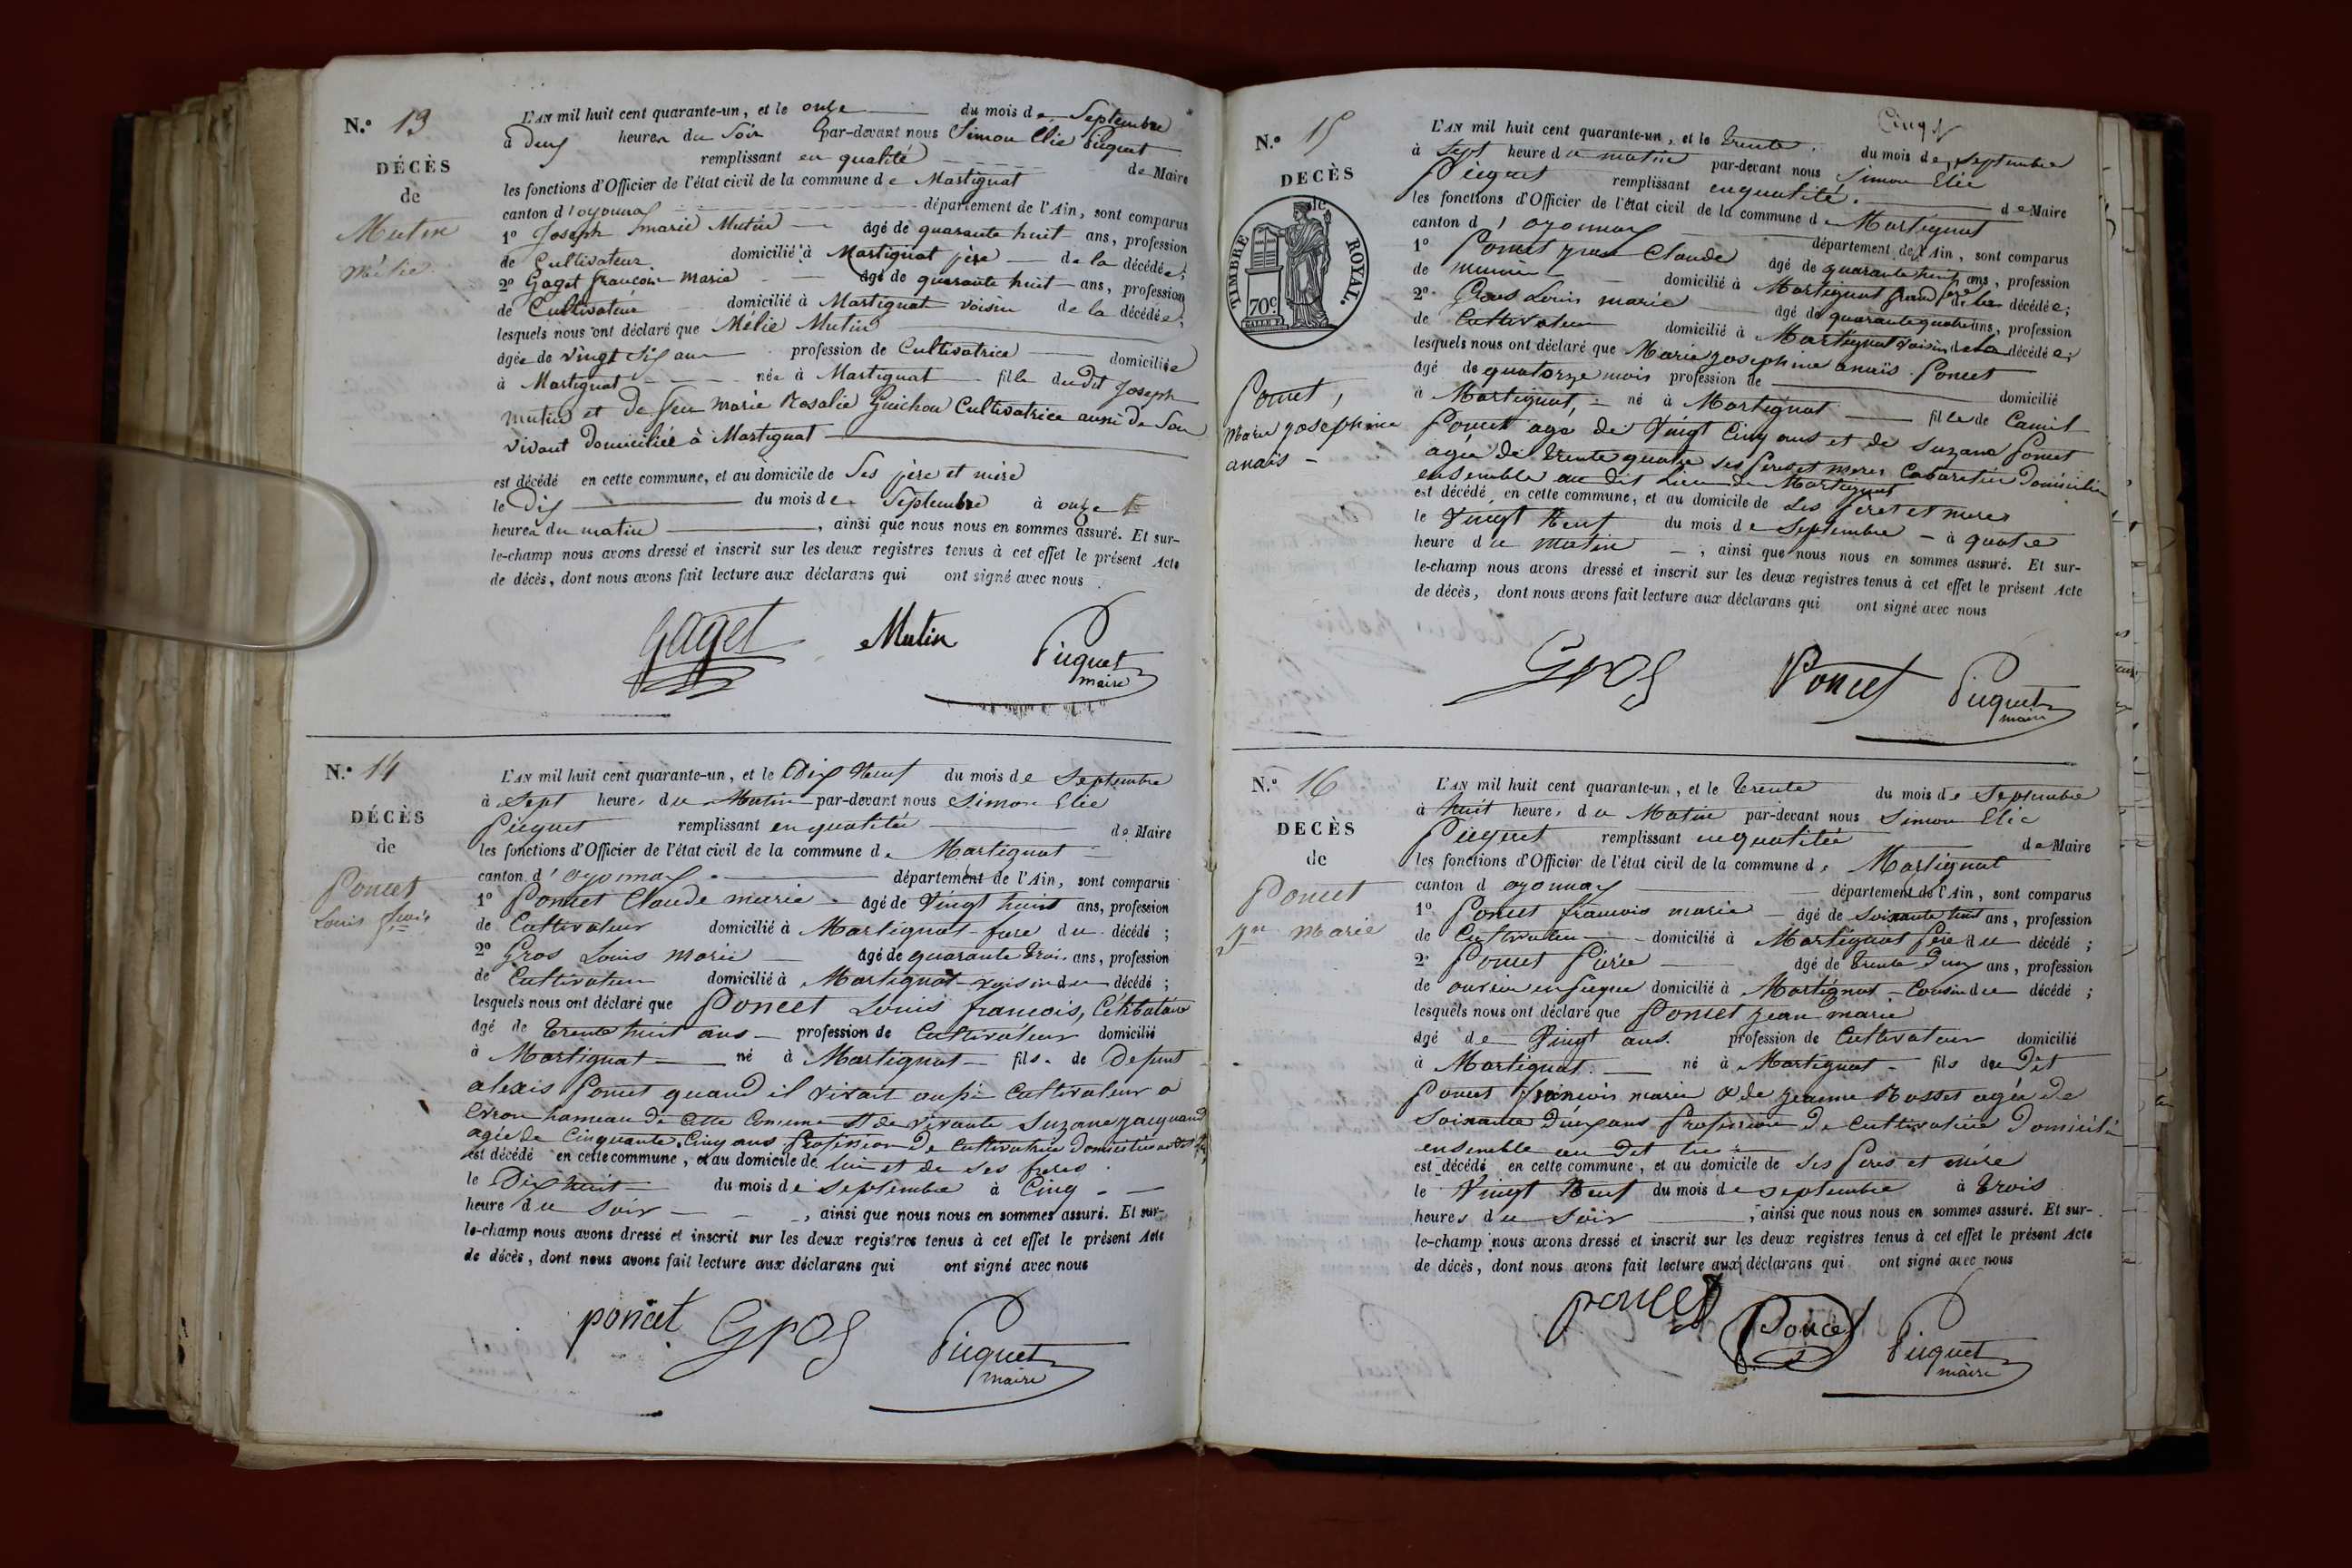 N.° 13
DÉCÈS
de
Mutin
Mélie
L'AN mil huit cent quarante-un, et le onze du mois de Septembre
à deux heures du Soir par-devant nous Simon Elie Piquet
remplissant en qualité de Maire
les fonctions d'Officier de l'état civil de la commune de Martignat
canton d'oyonnax département de l'Ain, sont comparus
1° Joseph marie Mutin âgé de quarante huit ans, profession
de Cultivateur domicilié à Martignat père de la décédée;
2° Gaget francois marie âgé de quarante huit ans, profession
de Cultivateur domicilié à Martignat voisin de la décédée;
lesquels nous ont déclaré que Mélie Mutin
âgée de vingt six ans profession de Cultivatrice domiciliée
à Martignat née à Martignat fille dudit Joseph
mutin et de feu marie Rosalie Guichon Cultivatrice aussi de Son
vivant domiciliée à Martignat
est décédé en cette commune, et au domicile de Ses père et mère
le Dix du mois de Septembre à onze
heures du matin, ainsi que nous nous en sommes assuré. Et sur-
le-champ nous avons dressé et inscrit sur les deux registres tenus à cet effet le présent Acte
de décès, dont nous avons fait lecture aux déclarans qui ont signé avec nous
Gaget Mutin Piquet
maire
N.° 14
DÉCÈS
de
Poncet
Louis fcois
L'AN mil huit cent quarante-un, et le Dix Neuf du mois de Septembre
à Sept heures du Matin par-devant nous Simon Elie
Piquet remplissant en qualitée de Maire
les fonctions d'Officier de l'état civil de la commune de Martignat
canton d'oyonnax département de l'Ain, sont comparus
1° Poncet Claude marie âgé de Vingt huit ans, profession
de Cultivateur domicilié à Martignat frere du décédé;
2° Gros Louis Marie âgé de quarante trois ans, profession
de Cultivateur domicilié à Martignat voisin du décédé;
lesquels nous ont déclaré que Poncet Louis francois, Célibataire
âgé de trente huit ans profession de Cultivateur domicilié
à Martignat né à Martignat fils de Defunt
alexis Poncet quand il vivait aussi Cultivateur a
Evron hameau de Cette Commune et de vivante Suzane jacquand
agée de Cinquante Cinq ans Profession de Cultivatrice Domiciliée
est décédé en cette commune, et au domicile de lui et de ses freres
le Dix huit du mois de Septembre à Cinq
heure du Soir, ainsi que nous nous en sommes assuré. Et sur-
le-champ nous avons dressé et inscrit sur les deux registres tenus à cet effet le présent Acte
de décès, dont nous avons fait lecture aux déclarans qui ont signé avec nous
poncet Gros Piquet
maire
Cinq
N.° 15
DECÈS
TIMBRE ROYAL.
70c
Poncet,
Marie josephine
anaïs
L'AN mil huit cent quarante-un, et le trente du mois de Septembre
à Sept heure du matin par-devant nous Simon Elie
Piquet remplissant en qualité de Maire
les fonctions d'Officier de l'état civil de la commune de Martignat
canton d'oyonnax département de l'Ain, sont comparus
1° Poncet jean Claude âgé de quarante huit ans, profession
de domicilié à Martignat grand père de la décédée;
2° Gros Louis marie âgé de quarante quatre ans, profession
de Cultivateur domicilié à Martignat voisin de la décédée;
lesquels nous ont déclaré que Marie josephine anaïs Poncet
âgé de quatorze mois profession de domicilié
à Martignat, né à Martignat fille de Camil
Poncet agé de Vingt Cinq ans et de Suzane Poncet
agée de trente quatre ses peres et meres Cabaretier Domicilié
ensemble au dit Lieu de Martignat
est décédé en cette commune, et au domicile de Ses peret et meres
le Vingt Neuf du mois de Septembre à quatre
heure du matin, ainsi que nous nous en sommes assuré. Et sur-
le-champ nous avons dressé et inscrit sur les deux registres tenus à cet effet le présent Acte
de décès, dont nous avons fait lecture aux déclarans qui ont signé avec nous
Gros Poncet Piquet
maire
N.° 16
DECÈS
de
Poncet
jn Marie
L'AN mil huit cent quarante-un, et le trente du mois de Septembre
à huit heures du Matin par-devant nous Simon Elie
Piquet remplissant en qualitée de Maire
les fonctions d'Officier de l'état civil de la commune de Martignat
canton d oyonnax département de l'Ain, sont comparus
1° Poncet francois marie âgé de soixante huit ans, profession
de Cultivateur domicilié à Martignat père du décédé;
2° Poncet Pierre âgé de trente deux ans, profession
de ouvrier en peigne domicilié à Martignat Cousin du décédé;
lesquels nous ont déclaré que Poncet jean marie
âgé de Vingt ans profession de Cultivateur domicilié
à Martignat né à Martignat fils du Dit
Poncet francois marie & de jeanne Rosset agée de
Soixante deux ans Profession de Cultivatrice Domicilié
ensemble au Dit lieu
est décédé en cette commune, et au domicile de Ses peres et mère
le Vingt Neuf du mois de Septembre à trois
heures du Soir, ainsi que nous nous en sommes assuré. Et sur-
le-champ nous avons dressé et inscrit sur les deux registres tenus à cet effet le présent Acte
de décès, dont nous avons fait lecture aux déclarans qui ont signé avec nous
poncet Poncet Piquet
maire